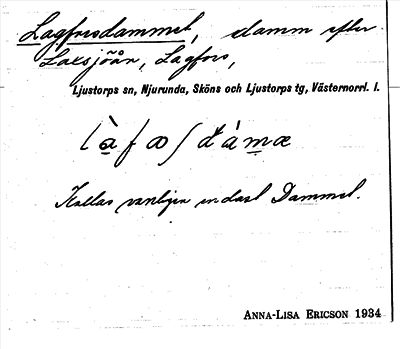 Lagforsdammet, damm efter
Laxsjöån, Lagfors,
Ljustorps sn, Njurunda, Sköns och Ljustorps tg, Västernorrl. l.
Kallas vanligen endast Dammet.
ANNA-LISA ERICSON 1934